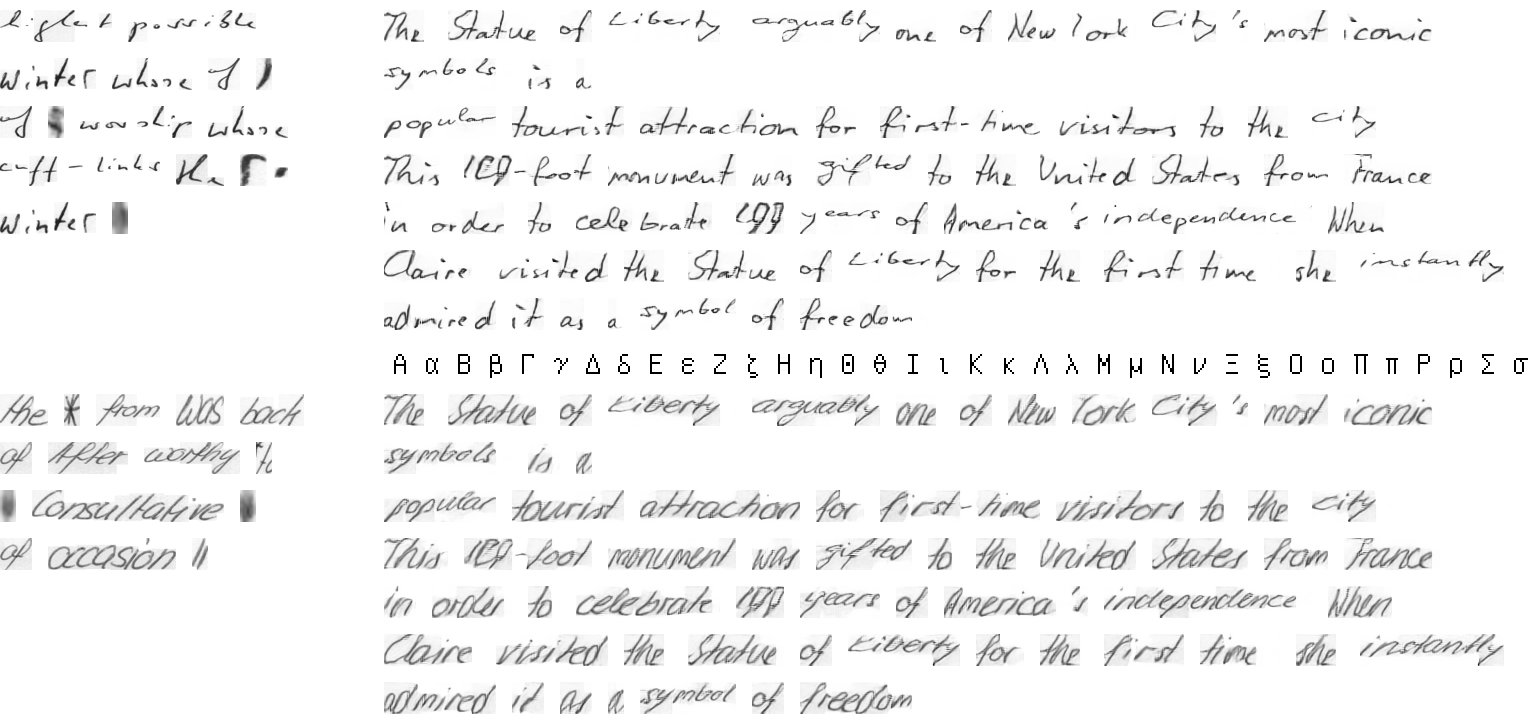 light possible
winter whose of )
of worship whose
cuff-links the
winter
The Statue of Liberty arguably one of New York City's most iconic
symbols is a
popular tourist attraction for first-time visitors to the city
This -foot monument was gifted to the United States from France
in order to celebrate years of America's independence When
Claire visited the Statue of Liberty for the first time she instantly
admired it as a symbol of freedom
Α α Β β Γ γ Δ δ Ε ε Ζ ζ Η η Θ θ Ι ι Κ κ Λ λ Μ μ Ν ν Ξ ξ Ο ο Π π Ρ ρ Σ σ
the * from was back
of After worthy to
Consultative
of occasion "
The Statue of Liberty arguably one of New York City's most iconic
symbols is a
popular tourist attraction for first-time visitors to the city
This -foot monument was gifted to the United States from France
in order to celebrate years of America's independence When
Claire visited the Statue of Liberty for the first time she instantly
admired it as a symbol of freedom